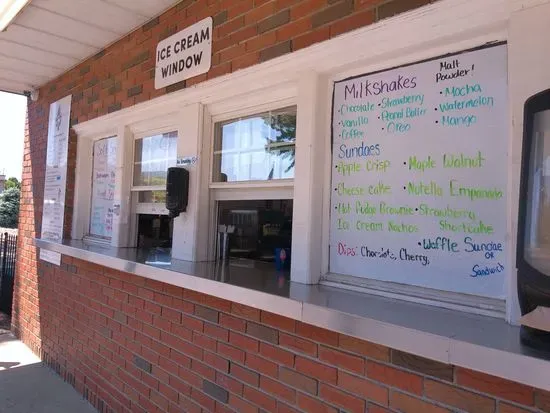 ICE CREAM
WINDOW
Milkshakes
Malt
Powder!
• Chocolate • Strawberry • Mocha
• Vanilla • Peanut Butter • Watermelon
• Coffee • Oreo • Mango
Sundaes
• Apple Crisp • Maple Walnut
• Cheesecake • Nutella Empanada
• Hot Fudge Brownie • Strawberry
Ice Cream Nachos Shortcake
• Waffle Sundae
OR
Sandwich
Dips: Chocolate, Cherry,